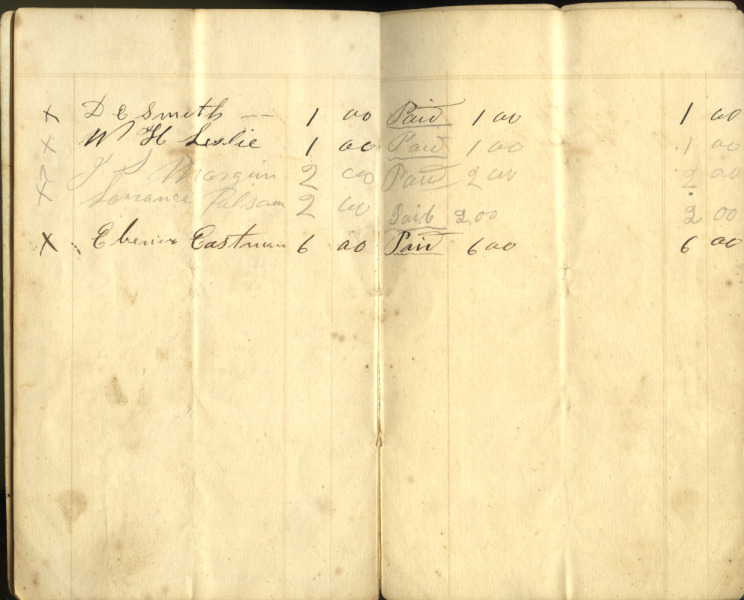 x D E Smith -- 1 00 Paid 1 00 1 00
x W H Leslie 1 00 Paid 1 00 1 00
x J S 2 00 Paid 2 00 2 00
x 2 00 Paid 2.00 2 00
x Eastman 6 00 Paid 6 00 6 00